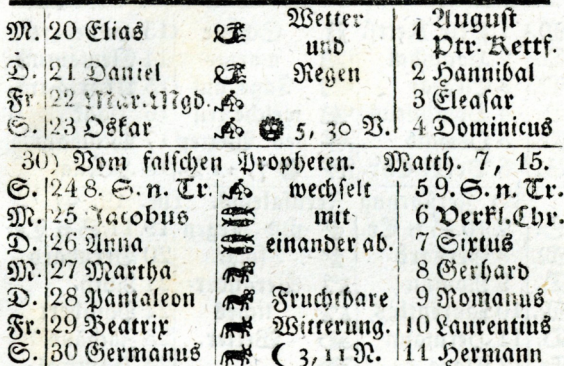 M. 20 Elias Wetter 1 August
und Ptr. Kettf.
D. 21 Daniel Regen 2 Hannibal
Fr. 22 Mar. Mgd. 3 Eleasar
S. 23 Oskar 5, 30 V. 4 Dominicus
30) Vom falschen Propheten. Matth. 7, 15.
S. 24 8. S. n. Tr. wechselt 5 9. S. n. Tr.
M. 25 Jacobus mit 6 Verkl. Chr.
D. 26 Anna einander ab. 7 Sixtus
M. 27 Martha 8 Gerhard
D. 28 Pantaleon Fruchtbare 9 Romanus
Fr. 29 Beatrix Witterung. 10 Laurentius
S. 30 Germanus ☾ 3, 11 N. 11 Hermann